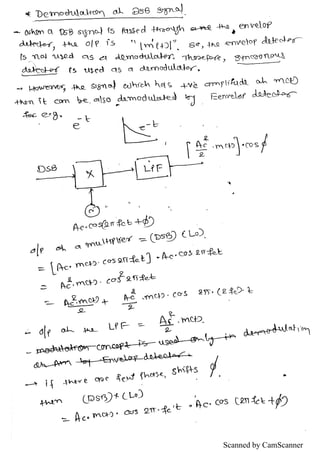 * Demodulation of DSB signal
- when a DSB signal is Passed through the envelop
detector, the o/p is "|m(t)|". So, the envelop detector
is not used as a demodulator. Therefore, Syncronous
detector is used as a demodulator.
- However, the signal which has +ve amplitude of m(t)
then it can be also demodulated by Eenvelop detector
for e.g. e^-t
e^-t
DSB
X
LPF
[Ac²/2 · m(t)]·cosϕ
Ac·cos(2πfct+ϕ)
o/p of a multiplier = (DSB)(Lo).
= [Ac· m(t)· cos2πfct]·Ac·cos 2πfct
= Ac²·m(t)· cos²2πfct
= Ac²·m(t)/2 + Ac²/2 ·m(t)· cos 2π·(2fc)·t
- o/p of the LPF = Ac²/2 ·m(t).
- modulation concept is used only in demodulation
of Am by Envelop detector.
→ if there are few Phase, shifts ϕ.
then (DSB)*(Lo)
= Ac· m(t)· cos 2π·fc·t · Ac· cos (2πfct+ϕ)
Scanned by CamScanner